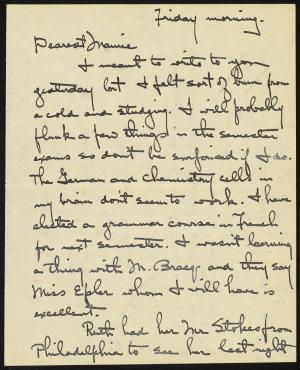 Friday morning.
Dearest Mamie
I meant to write to you
yesterday but I felt sort of bum from
a cold and studying. I will probably
flunk a few things in the semester
exams so don't be surprised if I do.
The German and Chemistry cells in
my brain don't seem to work. I have
elected a grammar course in French
for next semester. I wasn't learning
a thing with M. Bracy and they say
Miss Epler whom I will have is
excellent.
Ruth had her Mr Stokes from
Philadelphia to see her last night